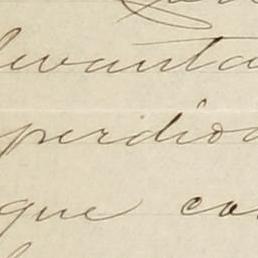 levanta
perdio
que co